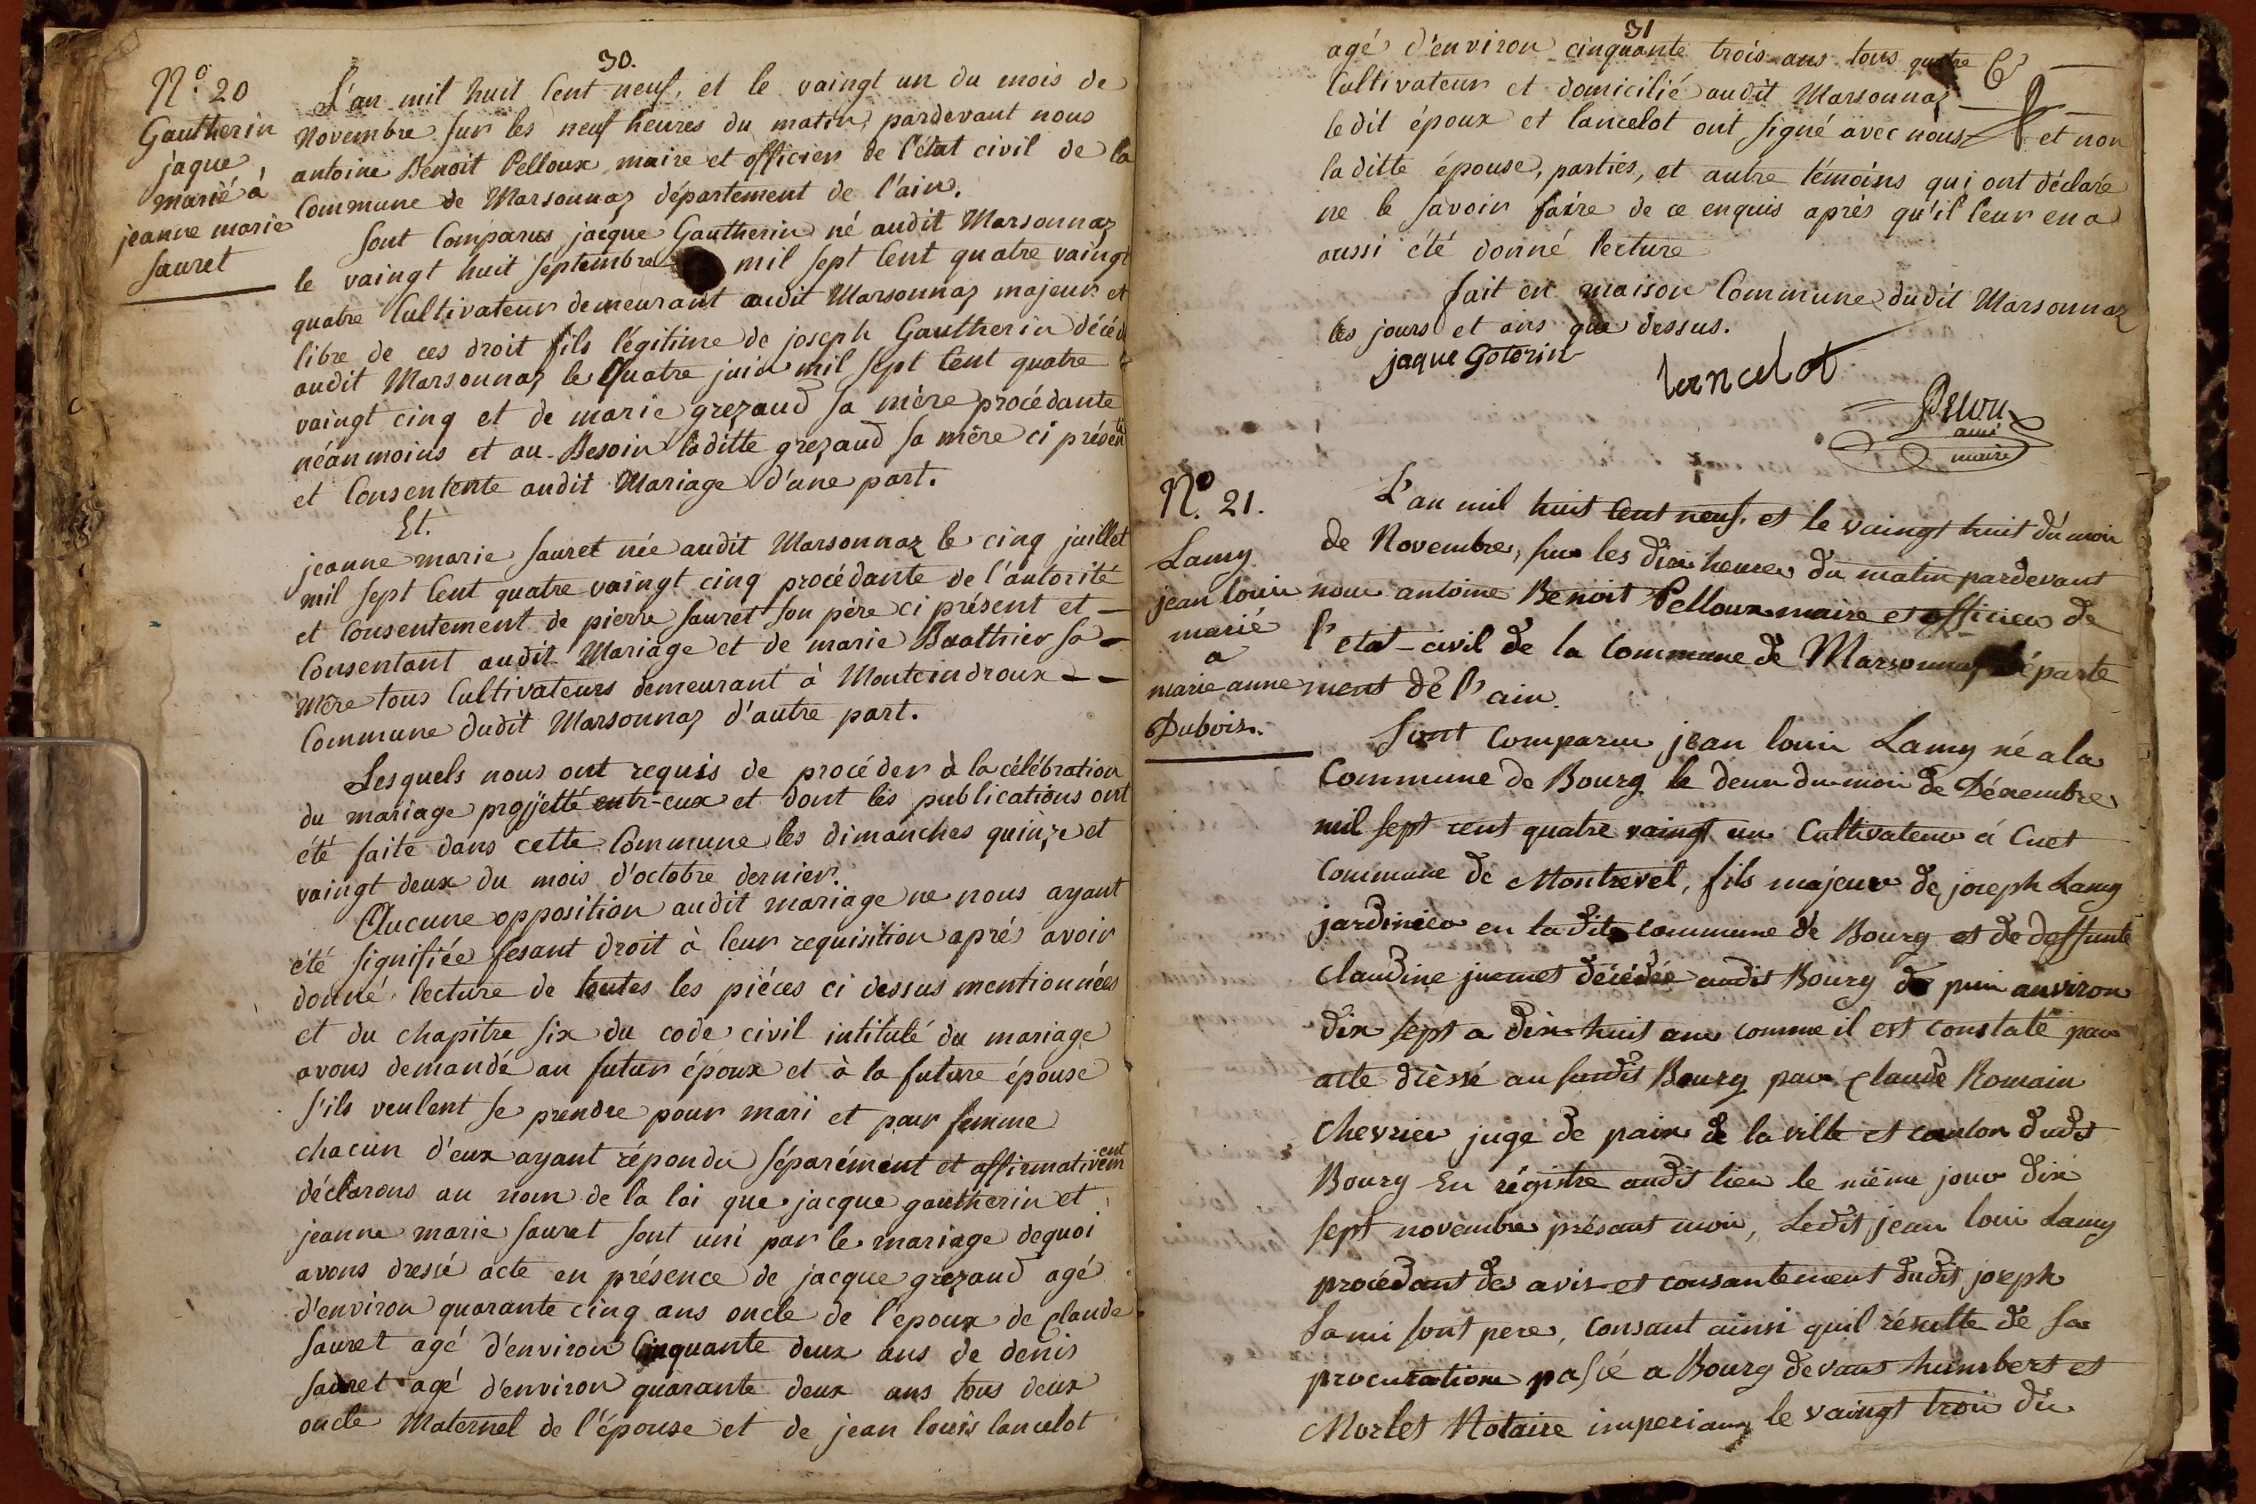 30.
N.° 20
Gautherin
jaque
marié à
jeanne marie
sauret
L'an mil huit Cent neuf, et le vaingt un du mois de
Novembre sur les neuf heures du matin, pardevant nous
antoine Benoit Pelloux maire et officier de l'état civil de la
Commune de Marsonnaz département de l'ain.
sont Comparus jacque Gautherin né audit Marsonnaz
le vaingt huit septembre mil sept Cent quatre vaingt
quatre Cultivateur demeurant audit Marsonnaz majeur et
libre de ces droit fils légitime de joseph Gautherin décédé
audit Marsonnaz le quatre juin mil sept Cent quatre
vaingt cinq et de marie grezaud sa mère procédante
néanmoins et au-Besoin laditte grezaud sa mère ci présente
et Consentente audit Mariage d'une part.
Et.
jeanne marie sauret née audit Marsonnaz le cinq juillet
mil sept Cent quatre vaingt cinq procédante de l'autorité
et Consentement de pierre sauret son père ci présent et –
Consentant audit Mariage et de marie Baathier sa –
Mère tous Cultivateurs demeurant à Monteindroux – –
Commune dudit Marsonnaz d'autre part.
Lesquels nous ont requis de procéder à la célébration
du mariage projjetté entr-eux et dont les publications ont
été faite dans cette Commune les dimanches quinze et
vaingt deux du mois d'octobre dernier.
Aucune opposition audit mariage ne nous ayant
été signifiée fesant droit à leur requisition aprés avoir
donné lecture de toutes les piéces ci dessus mentionnées
et du chapitre six du code civil intitulé du mariage
avons demandé au futur époux et à la future épouse
s'ils veulent se prendre pour mari et pour femme
chacun d'eux ayant répondu séparément et affirmativement
déclarons au nom de la loi que jacque gautherin et
jeanne marie sauret sont uni par le mariage dequoi
avons dressé acte en présence de jacque grezaud agé
d'environ quarante cinq ans oncle de l'époux de Claude
sauret agé d'environ Cinquante deux ans de denis
sauret agé d'environ quarante deux ans tous deux
oncle Maternel de l'épouse et de jean louis lancelot
31
agé d'environ cinquante trois ans tous quatre
Cultivateur et domicilié audit Marsonnaz
ledit époux et lancelot ont signé avec nous et non
laditte épouse, parties, et autre témoins qui ont déclaré
ne le savoir faire de ce enquis aprés qu'il leur en a
aussi été donné lecture
fait en maison Commune dudit Marsonnaz
les jours et ans que dessus.
jaque Goterin
lancelot
maire
N.° 21.
Lamy
jean louis
marié
a
marie anne
Dubois.
L'an mil huit Cent neuf. et le vaingt huit du mois
de Novembre, sur les dix heures du matin pardevant
nous antoine Benoit Pelloux maire et officier de
l'etat-civil de la Commune de Marsonnaz départe
ment de l'ain.
Sont comparus jean louis Lamy né a la
Commune de Bourg le deux du mois de Décembre
mil sept cent quatre vaingt un Cultivateur á Cuet
Commune de Montrevel, fils majeur de joseph Lamy
jardinier en ladite commune de Bourg et de deffunte
claudine juenet décédée audit Bourg de puis anviron
dix sept a dix-huit ans comme il est constaté par
acte dressé au susdit Bourg par Claude Romain
Chevrier juge de paix de la ville et canton dudit
Bourg En régistré audit lieu le même jour dix
sept novembre présant mois, Ledit jean loui Lamy
procédant des avis et consantement dudit joseph
Lami sont pere, Consant ainsi quil résulte de sa
procuration passé a Bourg devant humbert et
Morlet Notaire imperiaux le vaingt trois du